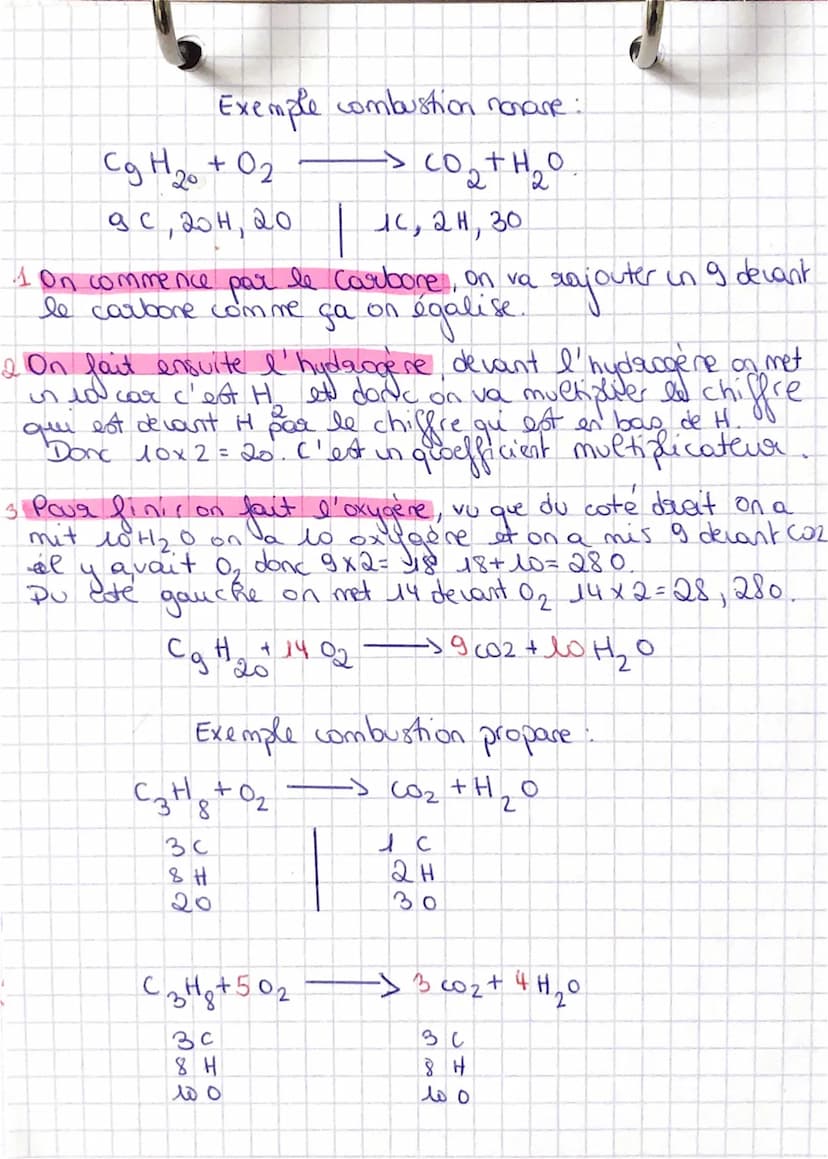 Exemple combustion nonane :
C9H20 + O2 → CO2 + H2O.
9C, 20H, 2O | 1C, 2H, 3O
1 On commence par le carbone, on va rajouter un 9 devant
le carbone comme ça on égalise.
2 On fait ensuite l'hydrogène, devant l'hydrogène on met
un 10 car c'est H2 et donc on va multiplier le chiffre
qui est devant H par le chiffre qui est en bas de H.
Donc 10x2 = 20. C'est un coefficient multiplicateur.
3 Pour finir on fait l'oxygène, vu que du coté droit on a
mit 10H2O on a 10 oxygène et on a mis 9 devant CO2
il y avait O2 donc 9x2= 18 18+10= 28O.
Du coté gauche on met 14 devant O2 14x2=28, 28O.
C9H20 + 14 O2 → 9 CO2 + 10 H2O
Exemple combustion propane :
C3H8 + O2 → CO2 + H2O
3C | 1 C
8 H | 2 H
2O | 3 O
C3H8 + 5 O2 → 3 CO2 + 4 H2O
3C 3 C
8 H 8 H
10 O 10 O